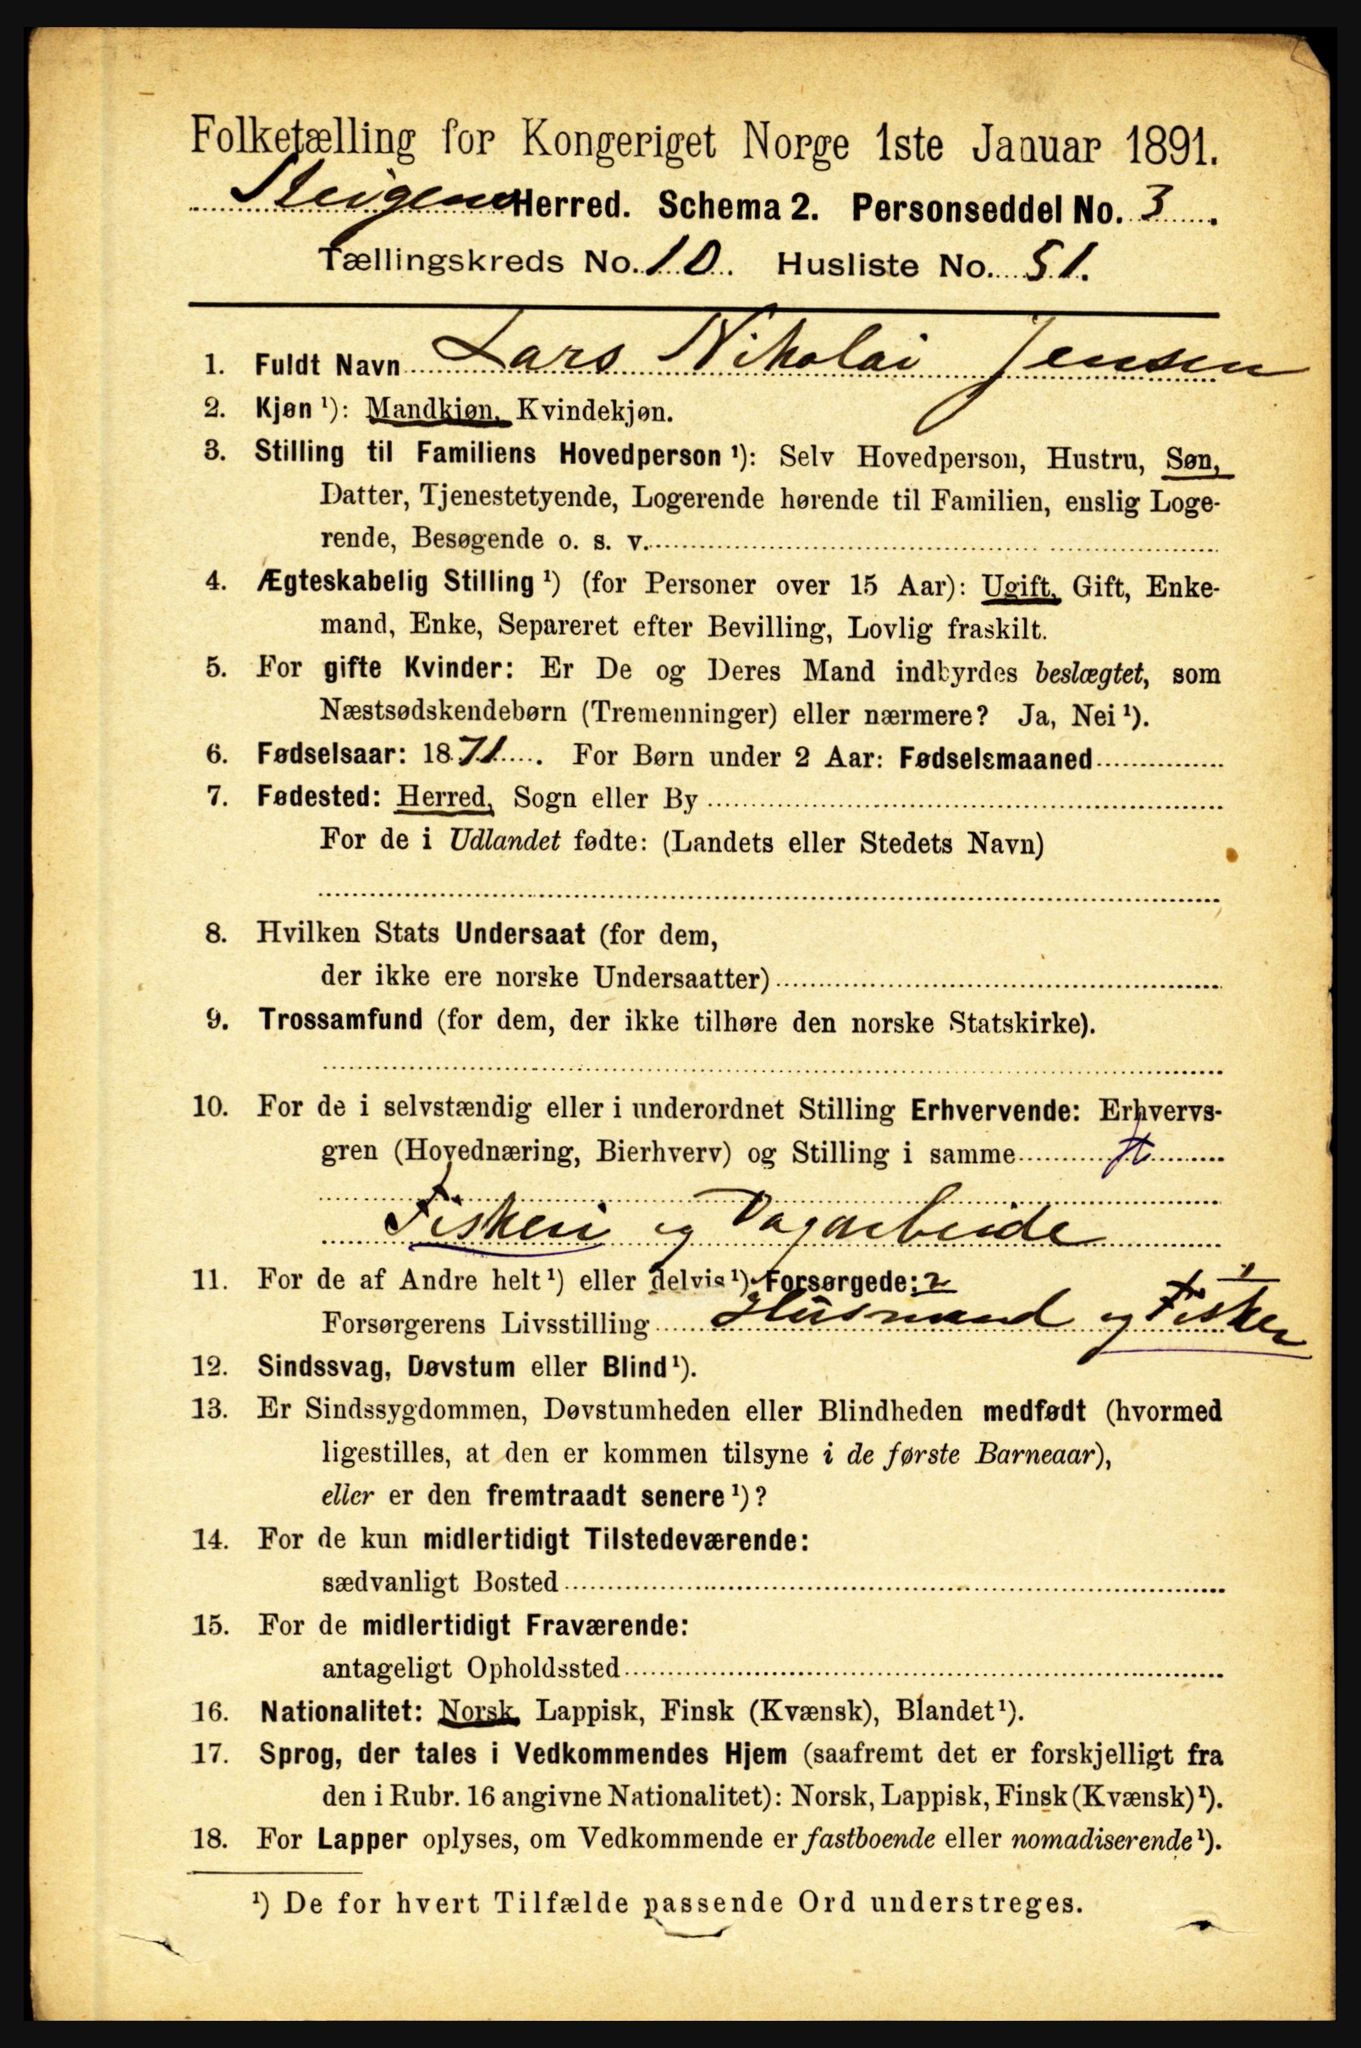 Folketælling for Kongeriget Norge 1ste Januar 1891.
Steigens Herred. Schema 2. Personseddel No. 3.
Tællingskreds No. 10. Husliste No. 51.
1. Fuldt Navn Lars Nikolai Jensen
2. Kjøn ¹): Mandkjøn, Kvindekjøn.
3. Stilling til Familiens Hovedperson ¹): Selv Hovedperson, Hustru, Søn,
Datter, Tjenestetyende, Logerende hørende til Familien, enslig Loge-
rende, Besøgende o. s. v.
4. Ægteskabelig Stilling ¹) (for Personer over 15 Aar): Ugift, Gift, Enke-
mand, Enke, Separeret efter Bevilling, Lovlig fraskilt.
5. For gifte Kvinder: Er De og Deres Mand indbyrdes beslægtet, som
Næstsødskendebørn (Tremenninger) eller nærmere? Ja, Nei ¹).
6. Fødselsaar: 1871. For Børn under 2 Aar: Fødselsmaaned
7. Fødested: Herred, Sogn eller By
For de i Udlandet fødte: (Landets eller Stedets Navn)
8. Hvilken Stats Undersaat (for dem,
der ikke ere norske Undersaatter)
9. Trossamfund (for dem, der ikke tilhøre den norske Statskirke).
10. For de i selvstændig eller i underordnet Stilling Erhvervende: Erhvervs-
gren (Hovednæring, Bierhverv) og Stilling i samme
Fiskeri og Dagarbeide
11. For de af Andre helt ¹) eller delvis ¹) Forsørgede:
Forsørgerens Livsstilling Husmand og Fisker
12. Sindssvag, Døvstum eller Blind ¹).
13. Er Sindssygdommen, Døvstumheden eller Blindheden medfødt (hvormed
ligestilles, at den er kommen tilsyne i de første Barneaar),
eller er den fremtraadt senere ¹)?
14. For de kun midlertidigt Tilstedeværende:
sædvanligt Bosted
15. For de midlertidigt Fraværende:
antageligt Opholdssted
16. Nationalitet: Norsk, Lappisk, Finsk (Kvænsk), Blandet ¹).
17. Sprog, der tales i Vedkommendes Hjem (saafremt det er forskjelligt fra
den i Rubr. 16 angivne Nationalitet): Norsk, Lappisk, Finsk (Kvænsk) ¹).
18. For Lapper oplyses, om Vedkommende er fastboende eller nomadiserende ¹).
¹) De for hvert Tilfælde passende Ord understreges.